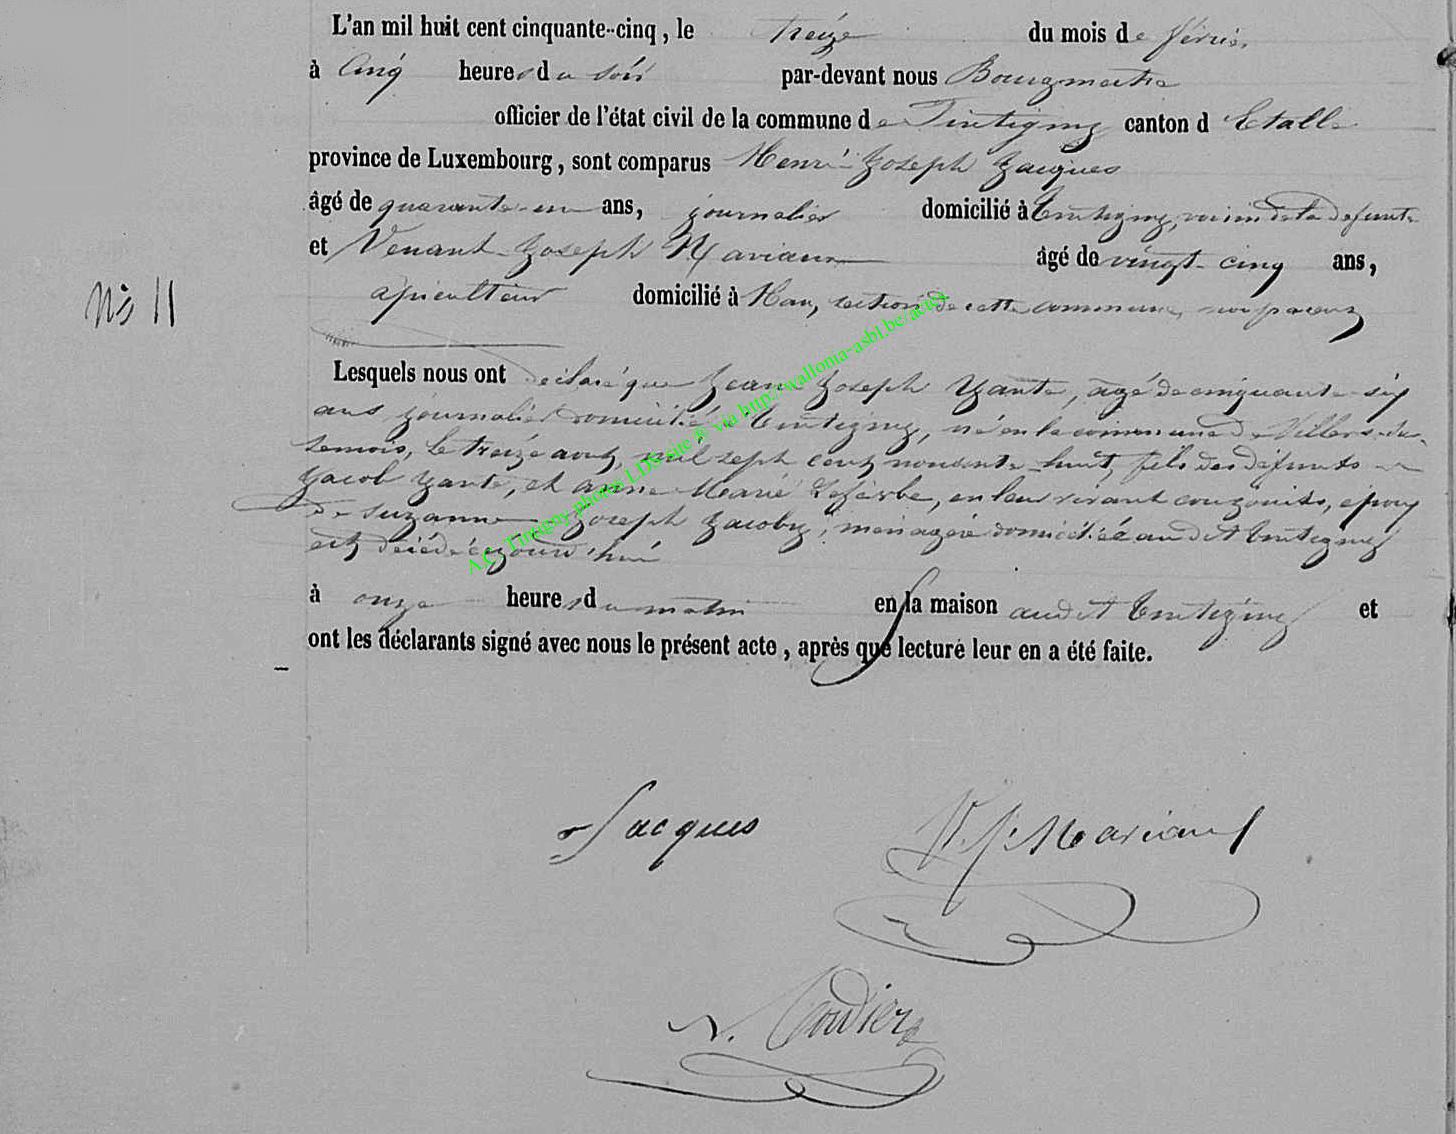 L'an mil huit cent cinquante-cinq, le treize du mois de février
à cinq heures du soir par-devant nous Bourgmestre
officier de l'état civil de la commune de Tintigny canton d'Etalle
province de Luxembourg, sont comparus Henri Joseph Jacques
âgé de quarante-un ans, journalier domicilié à Tintigny, voisin de la defunte
et Venant Joseph Mariaux âgé de vingt-cinq ans,
N° 11
apiculteur domicilié à Han, section de cette commune, non parens
Lesquels nous ont déclaré que Jean Joseph Yante, agé de cinquante-six
ans journalier domicilié à Tintigny, né en la commune de Villers-sur-
Semois, le treize août mil sept cent nonante-huit, fils des défunts
Jacob Yante, et Anne Marie, en leur vivant conjoints, époux
de Suzanne Joseph Jacoby, ménagère domiciliée audit Tintigny
est décédé aujourd'hui
à onze heures du matin en sa maison audit Tintigny et
ont les déclarants signé avec nous le présent acte, après que lecture leur en a été faite.
A.C. Tintigny photos LDS site © via http://wallonia-asbl.be/actes
Jacques
V. J. Mariaux